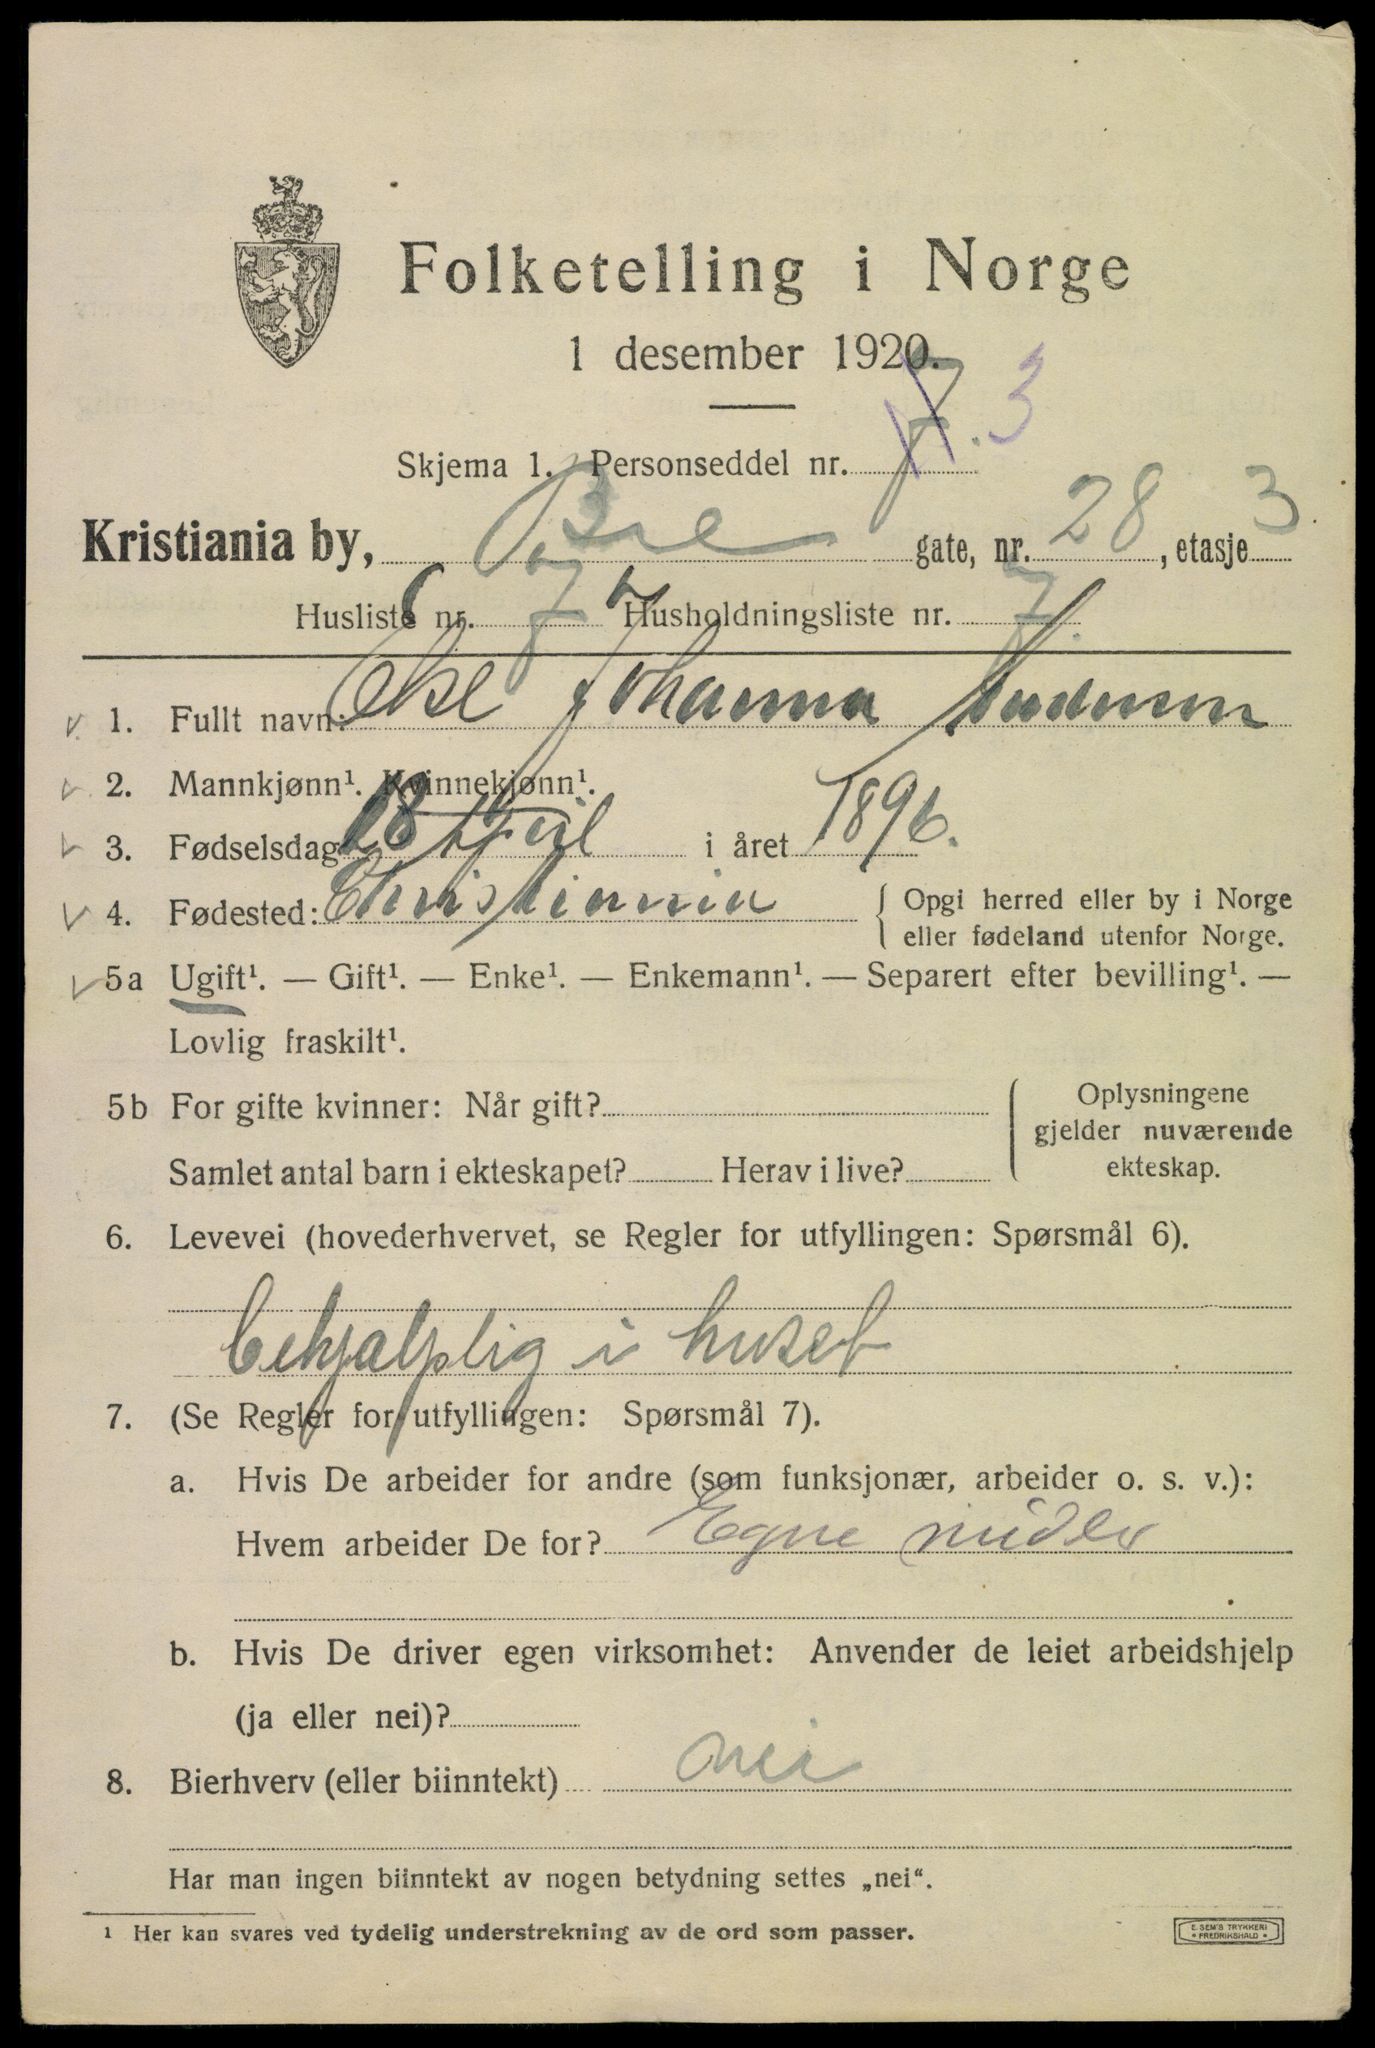 Folketelling i Norge
1 desember 1920.
Skjema 1. Personseddel nr. 7. 3
Kristiania by, gate, nr. 28, etasje 3
Husliste nr. 7 Husholdningsliste nr. 7.
1. Fullt navn: Else Johanna Andersen
2. Mannkjønn¹. Kvinnekjønn¹.
3. Fødselsdag 18 April i året 1896.
4. Fødested: Christiania { Opgi herred eller by i Norge
eller fødeland utenfor Norge.
5a Ugift¹. — Gift¹. — Enke¹. — Enkemann¹. — Separert efter bevilling¹. —
Lovlig fraskilt¹.
5b For gifte kvinner: Når gift? Oplysningene
gjelder nuværende
Samlet antal barn i ekteskapet? Herav i live? ekteskap.
6. Levevei (hovederhvervet, se Regler for utfyllingen: Spørsmål 6).
behjælplig i huset
7. (Se Regler for utfyllingen: Spørsmål 7).
a. Hvis De arbeider for andre (som funksjonær, arbeider o. s. v.):
Hvem arbeider De for? Egne midler
b. Hvis De driver egen virksomhet: Anvender de leiet arbeidshjelp
(ja eller nei)?
8. Bierhverv (eller biinntekt) nei
Har man ingen biinntekt av nogen betydning settes „nei“.
¹ Her kan svares ved tydelig understrekning av de ord som passer.
E. SEM'S TRYKKERI
• FREDRIKSHALD •